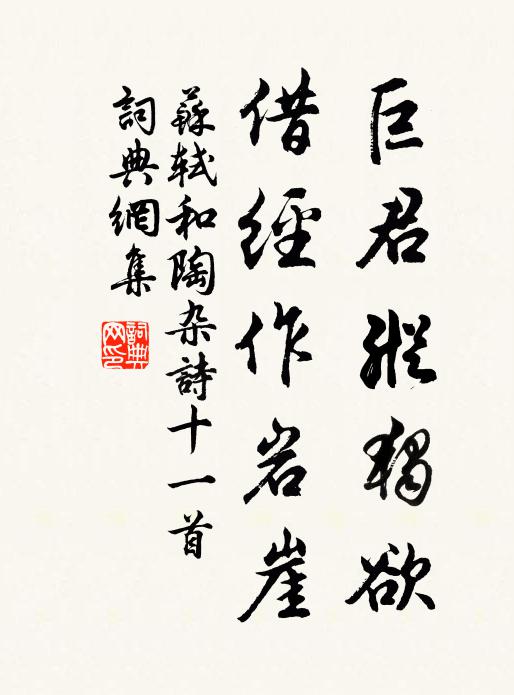 巨君縱獨欲
借經作岩崖
蘇軾和陶杂詩十一首
詞典網集
詞典网印